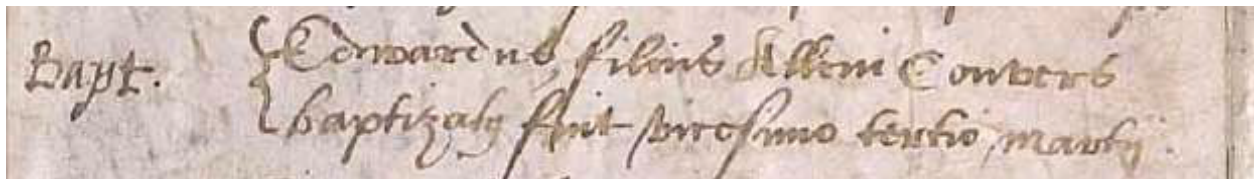 Bapt. Edwardus filius Alleni Convers
baptizatus fuit vicesimo tertio martij.